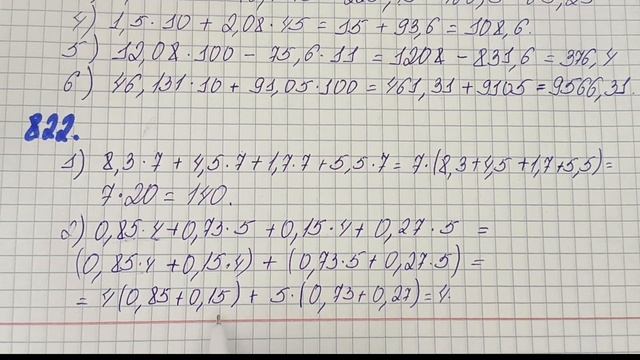 4) 1,5·10 + 2,08·45 = 15 + 93,6 = 108,6.
5) 12,08·100 - 75,6·11 = 1208 - 831,6 = 376,4
6) 46,131·10 + 91,05·100 = 461,31 + 9105 = 9566,31.
822.
1) 8,3·7 + 4,5·7 + 1,7·7 + 5,5·7 = 7·(8,3+4,5+1,7+5,5) =
7·20 = 140.
2) 0,85·4 + 0,73·5 + 0,15·4 + 0,27·5 =
(0,85·4 + 0,15·4) + (0,73·5 + 0,27·5) =
= 4(0,85+0,15) + 5·(0,73+0,27) = 4.